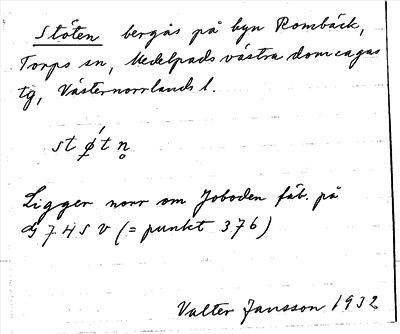 Stöten bergås på byn Rombäck,
Torps sn, Medelpads västra domsagas
tg, Västernorrlands l.
stǿtn̥
Ligger norr om Joboden fäb. på
G 74 S V (= punkt 376)
Valter Jansson 1932